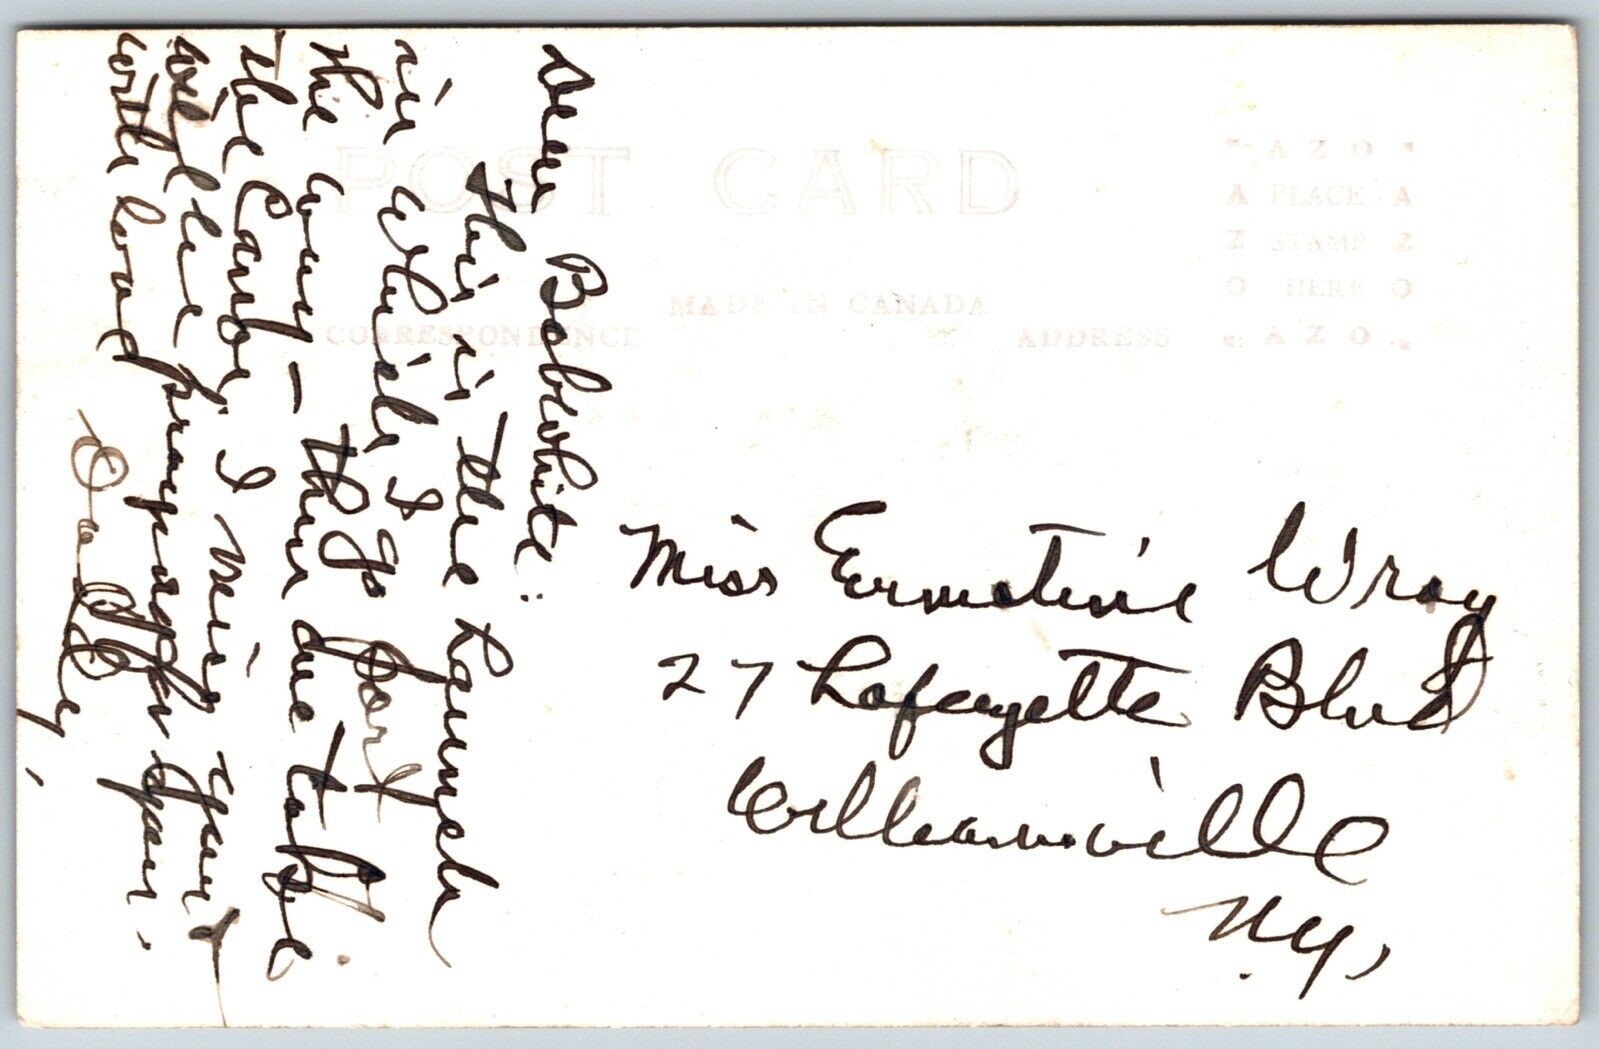 POST CARD
MADE IN CANADA
CORRESPONDENCE
ADDRESS
AZO
A PLACE A
Z STAMP Z
O HERE O
AZO
Dear Bobwhite:
This is the launch
in which I go part
the way – then we take
the Canoe. I your
will be
with love
Miss Ernestine Wray
27 Lafayette Blvd
Williamsville
N.Y.